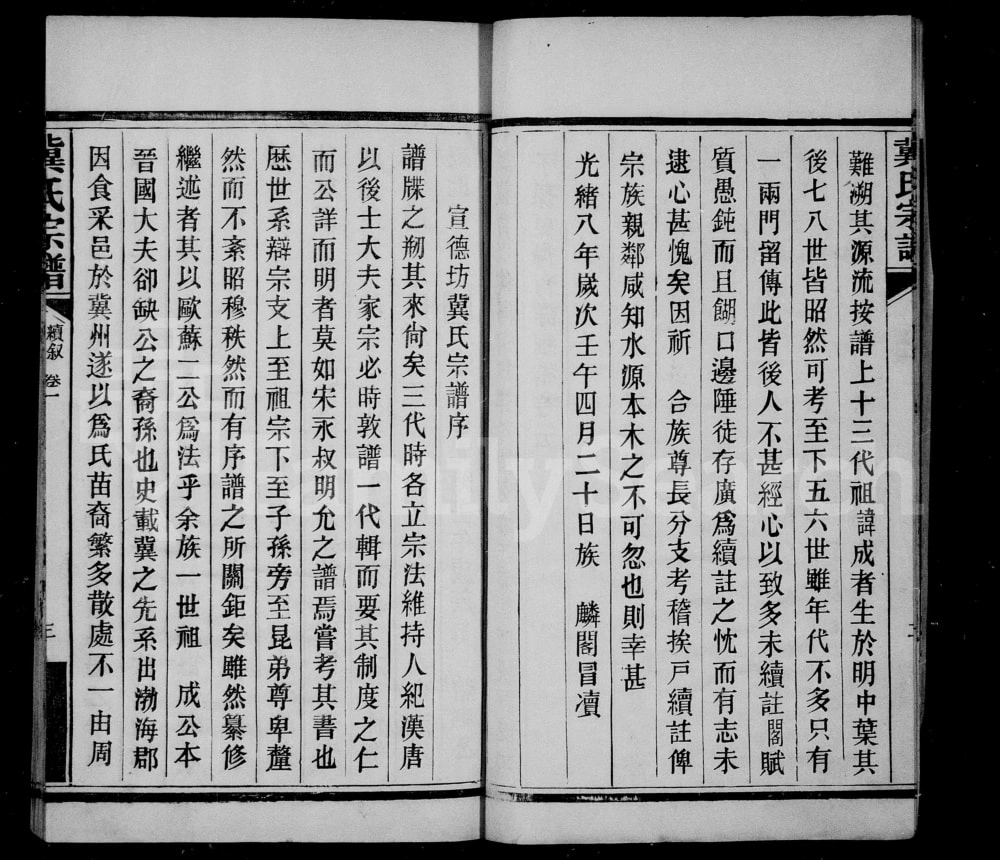 冀氏宗譜
難溯其源流按譜上十三代祖諱成者生於明中葉其
後七八世皆昭然可考至下五六世雖年代不多只有
一兩門留傳此皆後人不甚經心以致多未續註閣賦
質愚鈍而且餬口邊陲徒存廣為續註之忱而有志未
逮心甚愧矣因祈 合族尊長分支考稽挨戸續註俾
宗族親鄰咸知水源本木之不可忽也則幸甚
光緒八年歲次壬午四月二十日族 麟閣冒瀆
宣德坊冀氏宗譜序
譜牒之剏其來尙矣三代時各立宗法維持人紀漢唐
以後士大夫家宗必時敦譜一代輯而要其制度之仁
而公詳而明者莫如宋永叔明允之譜焉嘗考其書也
歴世系辯宗支上至祖宗下至子孫旁至昆弟尊卑釐
然而不紊昭穆秩然而有序譜之所關鉅矣雖然纂修
繼述者其以歐蘇二公為法乎余族一世祖 成公本
晉國大夫卻缺公之裔孫也史載冀之先系出渤海郡
因食采邑於冀州遂以為氏苗裔繁多散處不一由周
冀氏宗譜 續叙 卷一 三
FamilySearch